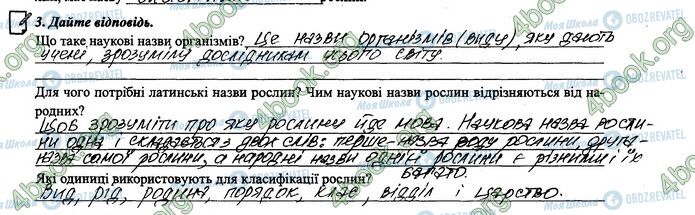 3. Дайте відповідь.
Що таке наукові назви організмів? Це назви організмів (виду), яку дають
учені, зрозумілу дослідникам усього світу.
Для чого потрібні латинські назви рослин? Чим наукові назви рослин відрізняються від на-
родних?
Щоб зрозуміти про яку рослину йде мова. Наукова назва росли-
ни одна і складається з двох слів: перше - назва роду рослини, друга -
назва самої рослини, а народні назви однієї рослини є різними і їх
багато.
Які одиниці використовують для класифікації рослин?
Вид, рід, родина, порядок, клас, відділ і царство.